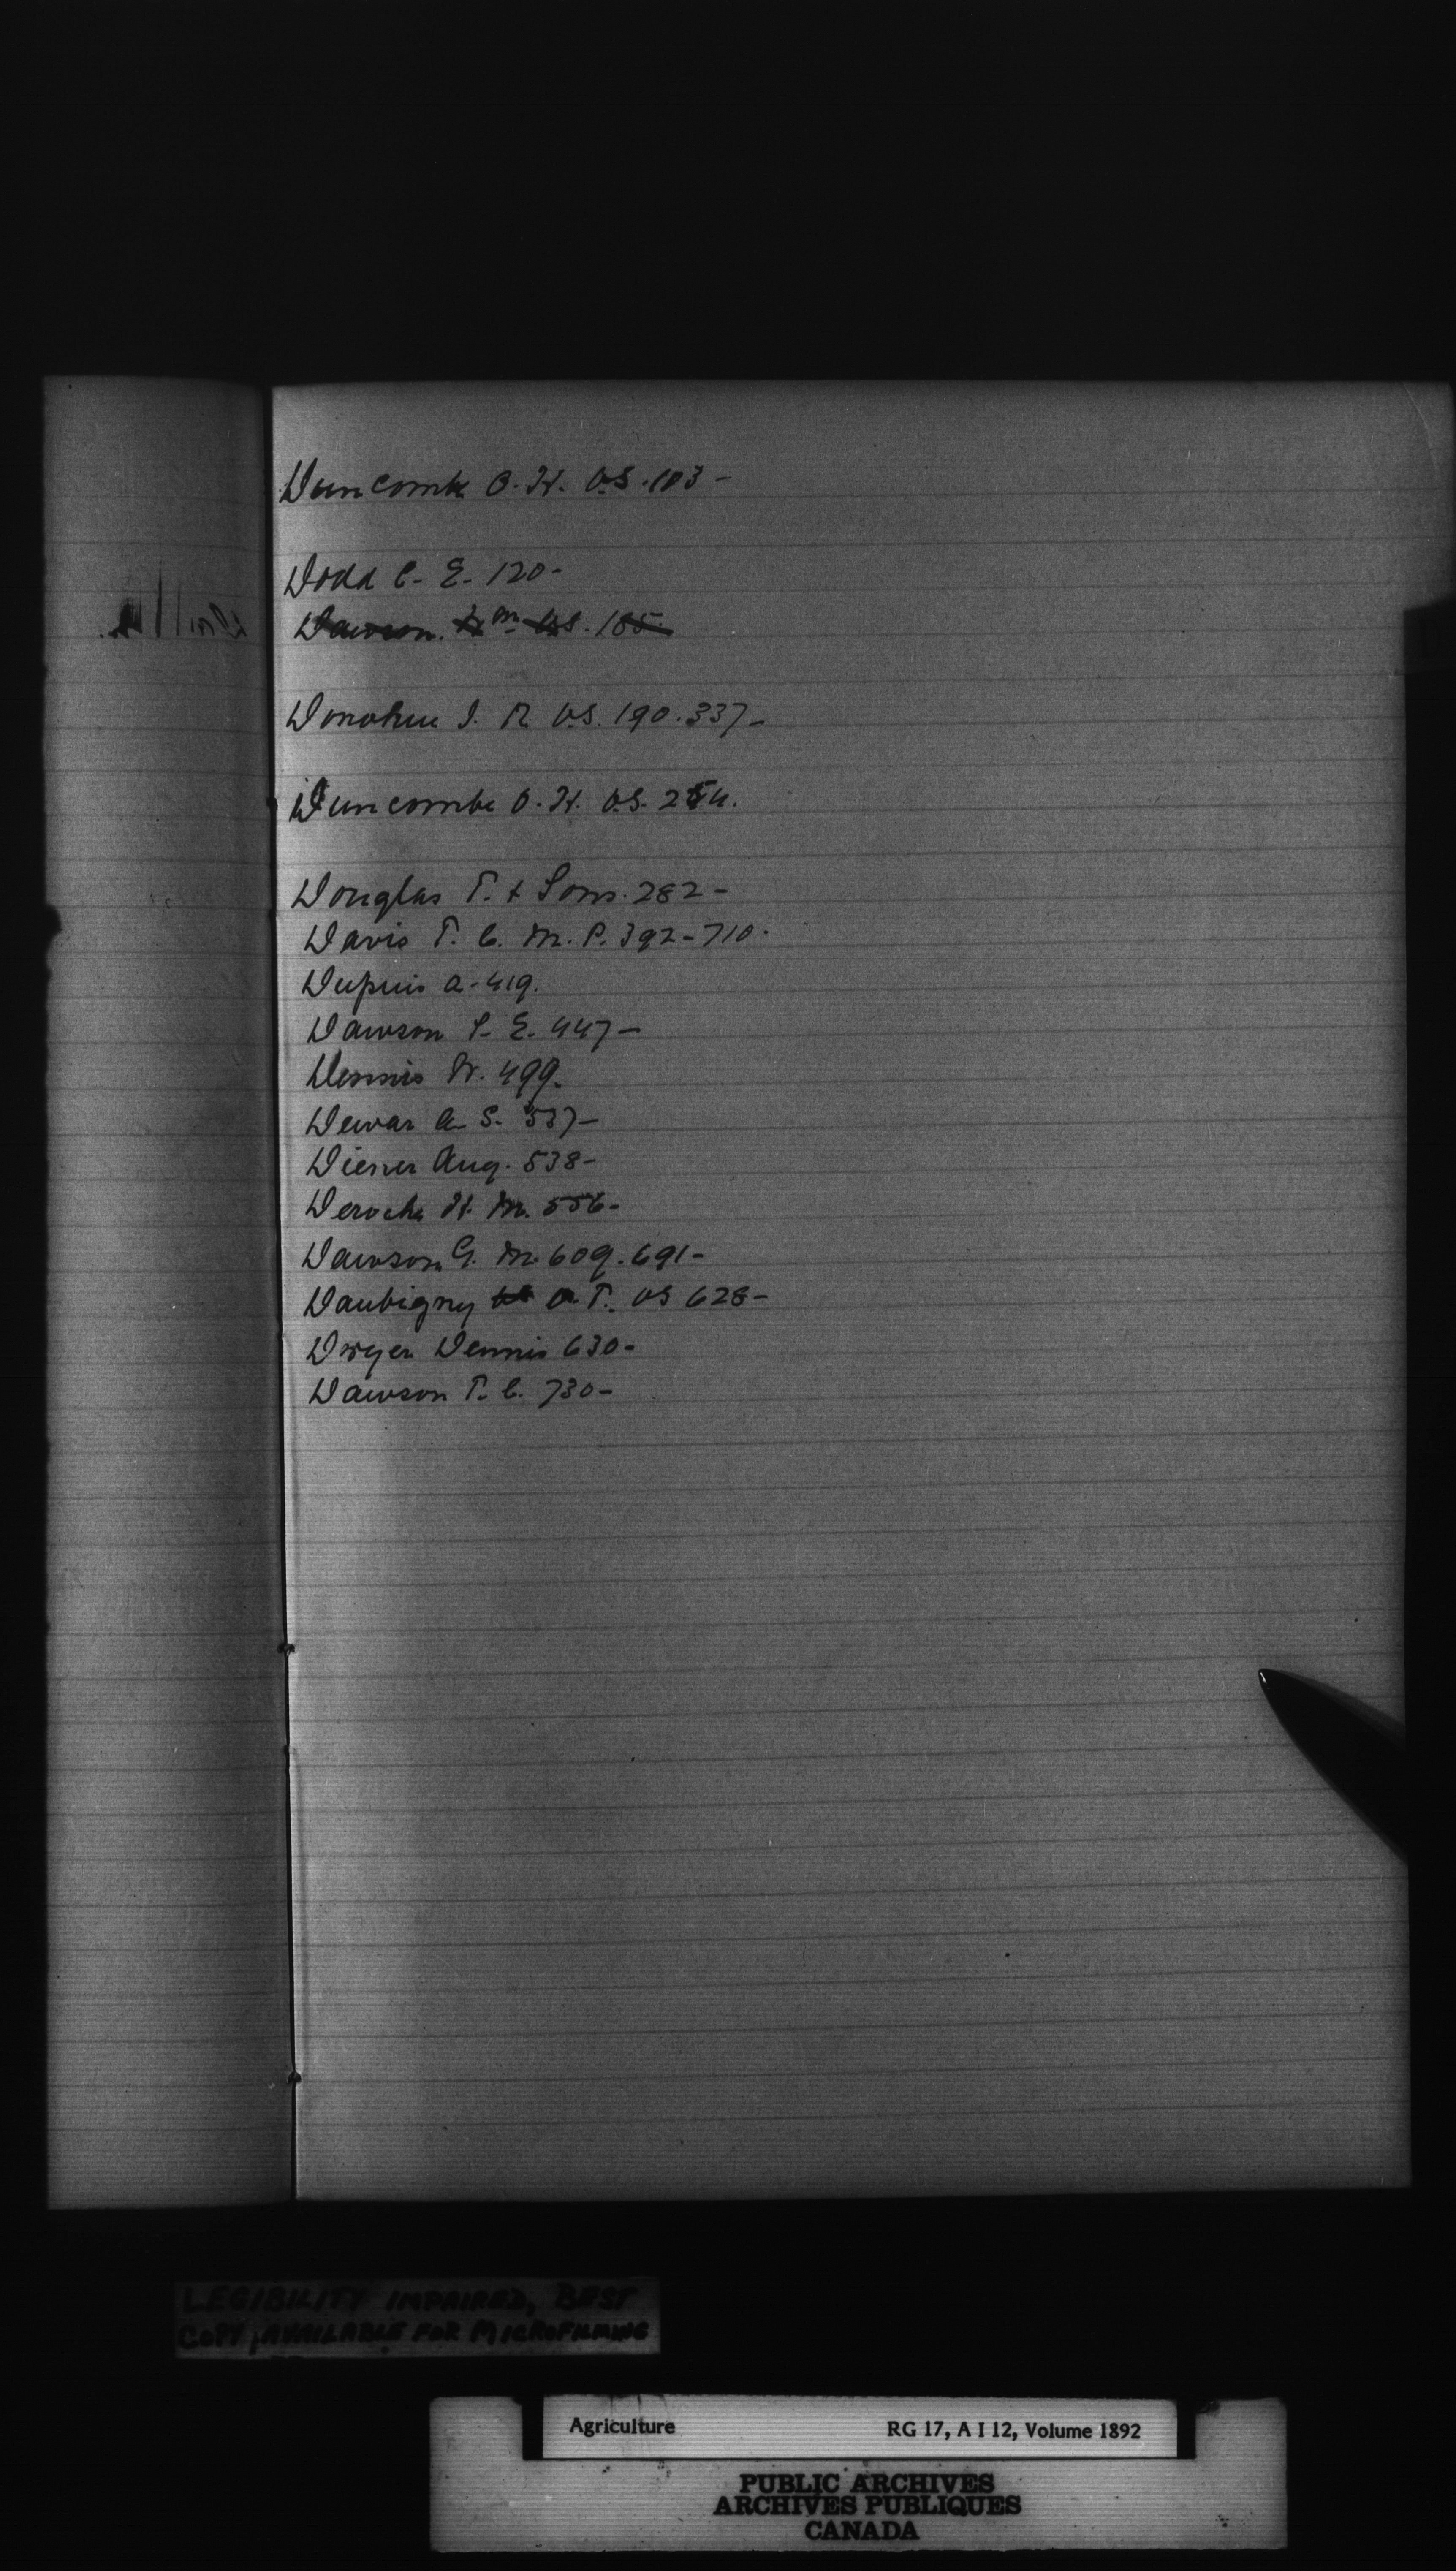 Duncombe O. H. V.S. 103 -
Dodd C. E. 120 -
Dawson. Wm V.S. 185.
Donohue J. R. V.S. 190. 337 -
Duncombe O. H. V.S. 254.
Douglas T. & Sons. 282 -
Davis T. C. M. P. 392 - 710.
Dupuis A - 419.
Dawson S. E. 447 -
Dennis W. 499.
Dewar A. S. 537 -
Diener Aug. 538 -
Deroche H. M. 556 -
Dawson G. M. 609. 691 -
Daubigny T. VS 628 -
Dwyer Dennis 630 -
Dawson T. C. 730 -
D
LEGIBILITY IMPAIRED, BEST
COPY AVAILABLE FOR MICROFILMING
Agriculture RG 17, A I 12, Volume 1892
PUBLIC ARCHIVES
ARCHIVES PUBLIQUES
CANADA